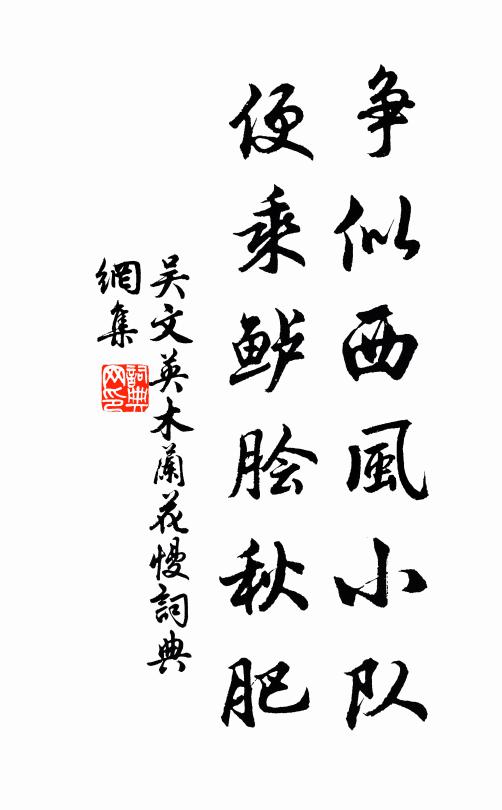 争似西風小队
便乘鲈脍秋肥
吴文英木蘭花慢詞典
網集
詞典
网印